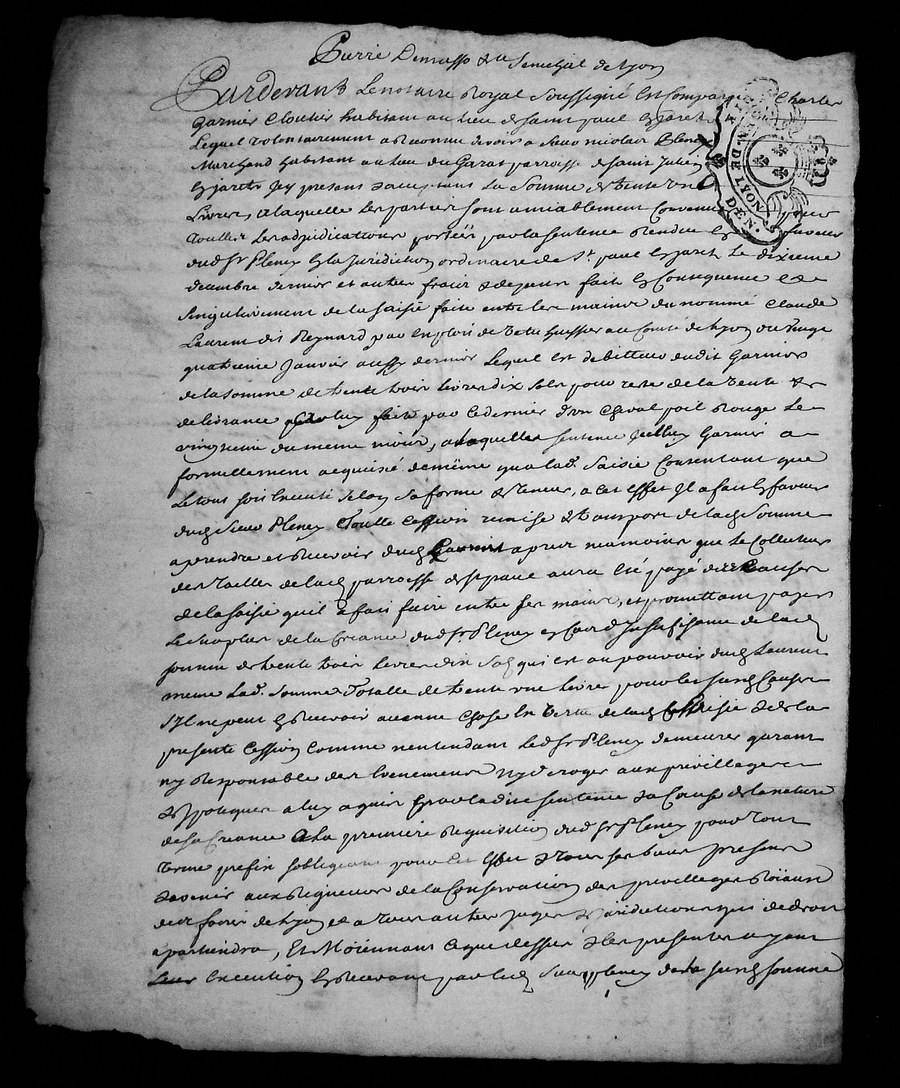 Pierre Demasso &a Senechal de Lyon
Pardevant Le notaire Royal soussigné est Comparu Charles
Garnier Cloutier habitant au lieu de saint paul en Jarets
Lequel volontairement a reconnu devoir a sieur nicolas Pleney
Marchand habitant au lieu du parroisse de saint Julien
en jarets Icy presant & acceptant La somme de trente une
Livres, a laquelle Les parties sont amiablement Convenues pour
toutes Les adjudications portées par la sentence Rendue en faveur
dud Sr Pleney en la Juridiction ordinaire de St paul en jarets Le dixieme
decembre dernier et autres fraix & depens faits en Consequence &
singulierement de la saisie faite entre les mains du nommé Claude
Laurent dit Reynard par Exploit de huissier au Comté de Lyon du vingt
quatrieme Janvier aussy dernier Lequel est debitteur dudit Garnier
de la somme de trente trois Livres dix sols pour reste de la vente &
delivrance faite par ce dernier d'un Cheval poil Rouge Le
du meme mois, a laquelle sentence Garnier a
formellement acquiscé de même qua lad. saisie Consentant que
Le tout soit Executé selon sa forme & teneur, a cet effet Il a fait En faveur
dud sieur Pleney Cession remise & transport de lad somme
a prendre et Recevoir dud Laurent apres neanmoins que Le Collecteur
des Tailles de lad parroisse de st paul aura Eté payé des Causes
de la saisie quil a fait faire entre ses mains, et promettant payer
Le surplus de la Creance dud Sr Pleney en Cas d'Insufisance de lad
somme de trente trois Livres dix sols qui est au pouvoir dud Laurent
meme Lad. somme Totalle de trente une Livres pour les susd Causes
s'Il ne peut en Recevoir aucune Chose En vertu de lad saisie & de la
presente Cession Comme nentendant Led Sr Pleney demeurer garant
ny Responsable des Evenemens Ny deroger aux privilleges
& hypoteques a luy acquis par ladite sentence & a Cause de la nature
de sa Creance a La premiere Requisition dud Sr Pleney pour tout
terme prefix sobligeant pour Cet Effet & tous ses biens presens
& avenir aux Rigueurs de la Conservation des privilleges Roïaux
des foires de Lyon et a tous autres Juges & Juridictions qui de droit
apartiendra, Et Moïennant ce que dessus & les presentes ayant
Leur Execution En Recevant par led sieur pleney de la susd somme
GEN. DE LYON
DEN.